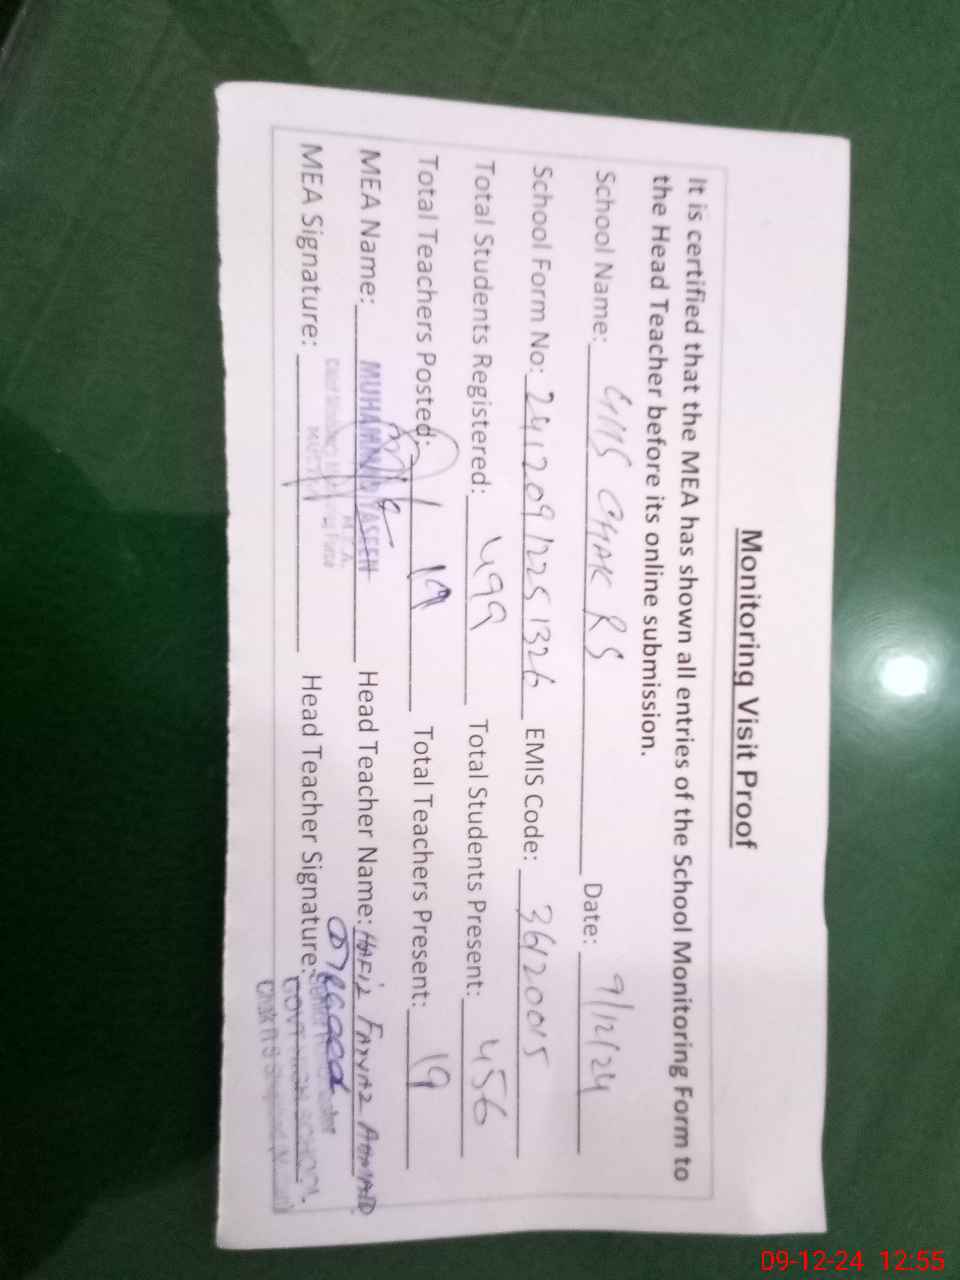 Monitoring Visit Proof
It is certified that the MEA has shown all entries of the School Monitoring Form to
the Head Teacher before its online submission.
School Name: GHS CHAK RS Date: 9/12/24
School Form No: 24120912251326 EMIS Code: 36120015
Total Students Registered: 499 Total Students Present: 456
Total Teachers Posted: 19 Total Teachers Present: 19
MEA Name: MUHAMMAD YASEEN Head Teacher Name: HAFIZ FAYYAZ AHMAD
M.E.A
MEA Signature: Head Teacher Signature:
GOVT HIGH SCHOOL
CHAK R S
09-12-24 12:55